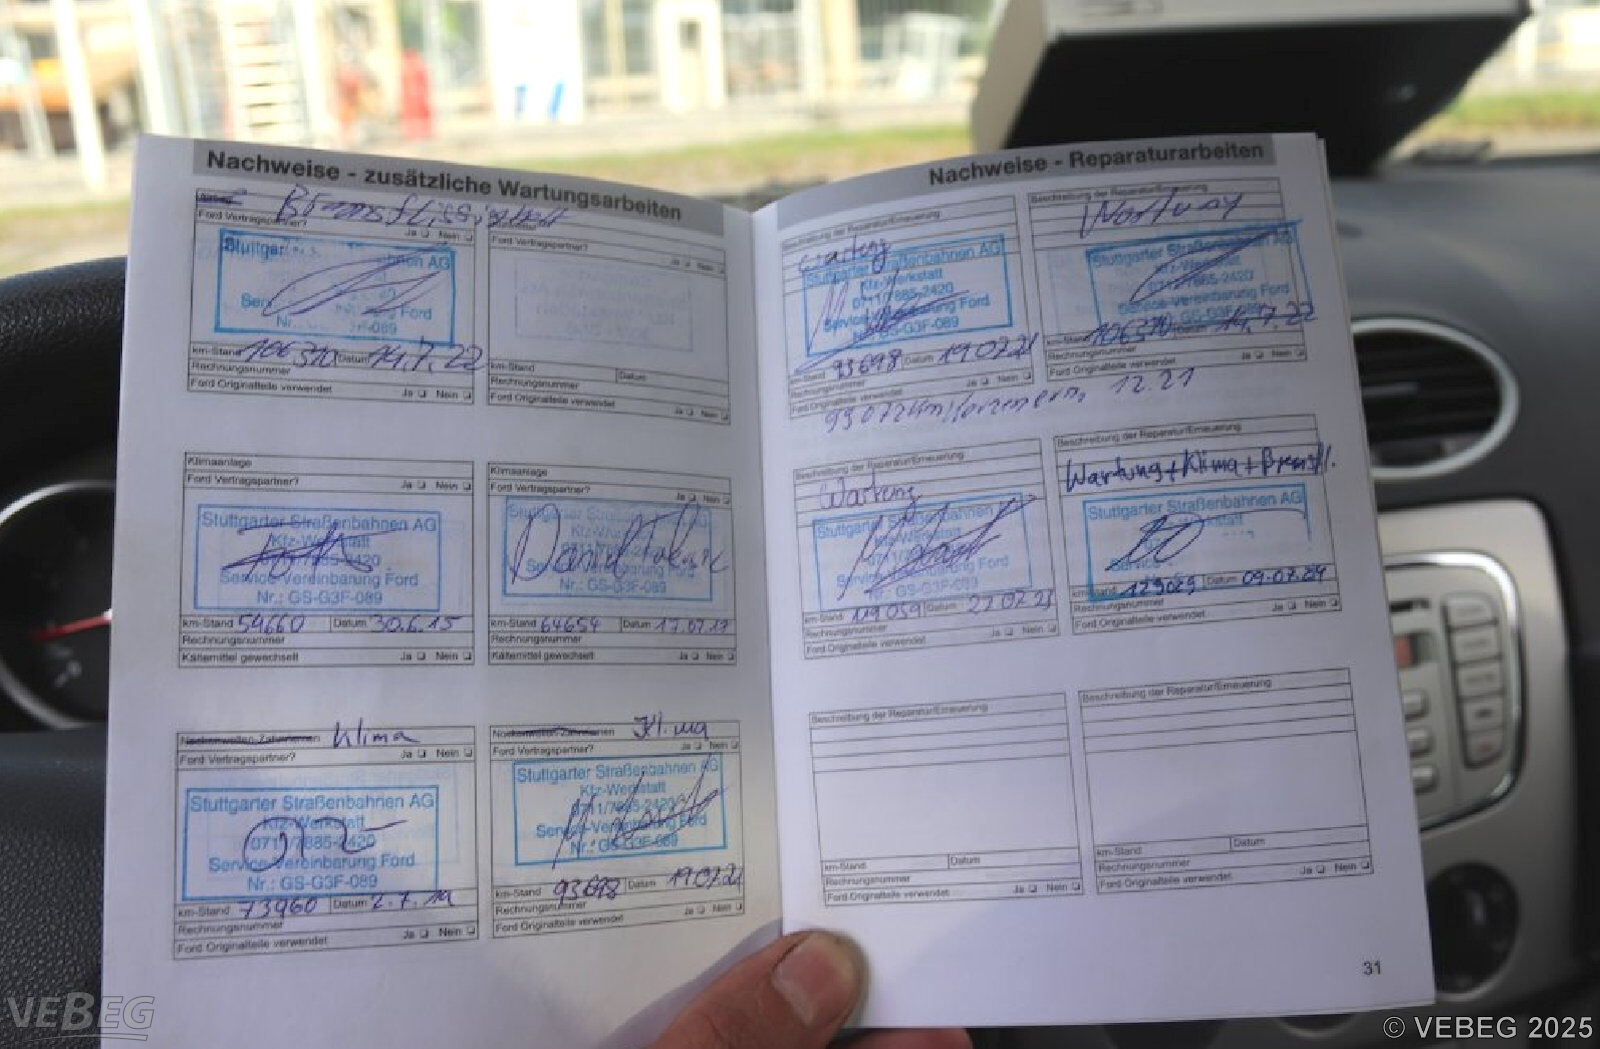 Nachweise - zusätzliche Wartungsarbeiten
Ford Vertragspartner?
Ja Nein
Stuttgar
hnen AG
Ford
-089
km-Stand 106370 Datum 14.7.22
Rechnungsnummer
Ford Originalteile verwendet
Ja Nein
Ford Vertragspartner?
Ja Nein
km-Stand
Datum
Rechnungsnummer
Ford Originalteile verwendet
Ja Nein
Klimaanlage
Ford Vertragspartner?
Ja Nein
Stuttgarter Straßenbahnen AG
Kfz-Werkstatt
0711/7885-2420
Service-Vereinbarung Ford
Nr.: GS-G3F-089
km-Stand 54660 Datum 30.6.15
Rechnungsnummer
Kältemittel gewechselt
Ja Nein
Klimaanlage
Ford Vertragspartner?
Ja Nein
Stuttgarter Straßenbahnen AG
Nr.: GS-G3F-089
km-Stand 64654 Datum 17.07.17
Rechnungsnummer
Kältemittel gewechselt
Ja Nein
Nockenwellen-Zahnriemen Klima
Ford Vertragspartner?
Ja Nein
Stuttgarter Straßenbahnen AG
Kfz-Werkstatt
0711/7885-2420
Service-Vereinbarung Ford
Nr.: GS-G3F-089
km-Stand 73960 Datum 2.7.19
Rechnungsnummer
Ford Originalteile verwendet
Ja Nein
Nockenwellen-Zahnriemen Klima
Ford Vertragspartner?
Ja Nein
Stuttgarter Straßenbahnen AG
Kfz-Werkstatt
0711/7885-2420
Service-Vereinbarung Ford
Nr.: GS-G3F-089
km-Stand 93698 Datum 19.07.21
Rechnungsnummer
Ford Originalteile verwendet
Ja Nein
Nachweise - Reparaturarbeiten
Beschreibung der Reparatur/Erneuerung
Wartung
Stuttgarter Straßenbahnen AG
Kfz-Werkstatt
0711/7885-2420
Service-Vereinbarung Ford
GS-G3F-089
km-Stand 93698 Datum 19.07.21
Rechnungsnummer
Ja Nein
Ford Originalteile verwendet
Beschreibung der Reparatur/Erneuerung
Wartung
Stuttgarter Straßenbahnen AG
Kfz-Werkstatt
0711/7885-2420
Service-Vereinbarung Ford
km-Stand 106370 Datum 14.7.22
Rechnungsnummer
Ja Nein
Ford Originalteile verwendet
12.21
Beschreibung der Reparatur/Erneuerung
Wartung
Stuttgarter Straßenbahnen AG
Service-Vereinbarung Ford
Nr.: GS-G3F-089
km-Stand 119059 Datum
Rechnungsnummer
Ja Nein
Ford Originalteile verwendet
Beschreibung der Reparatur/Erneuerung
Wartung + Klima + Bremsfl.
Stuttgarter Straßenbahnen AG
km-Stand 129029 Datum 09.07.24
Rechnungsnummer
Ja Nein
Ford Originalteile verwendet
Beschreibung der Reparatur/Erneuerung
km-Stand
Datum
Rechnungsnummer
Ja Nein
Ford Originalteile verwendet
Beschreibung der Reparatur/Erneuerung
km-Stand
Datum
Rechnungsnummer
Ja Nein
Ford Originalteile verwendet
31
VEBEG
© VEBEG 2025